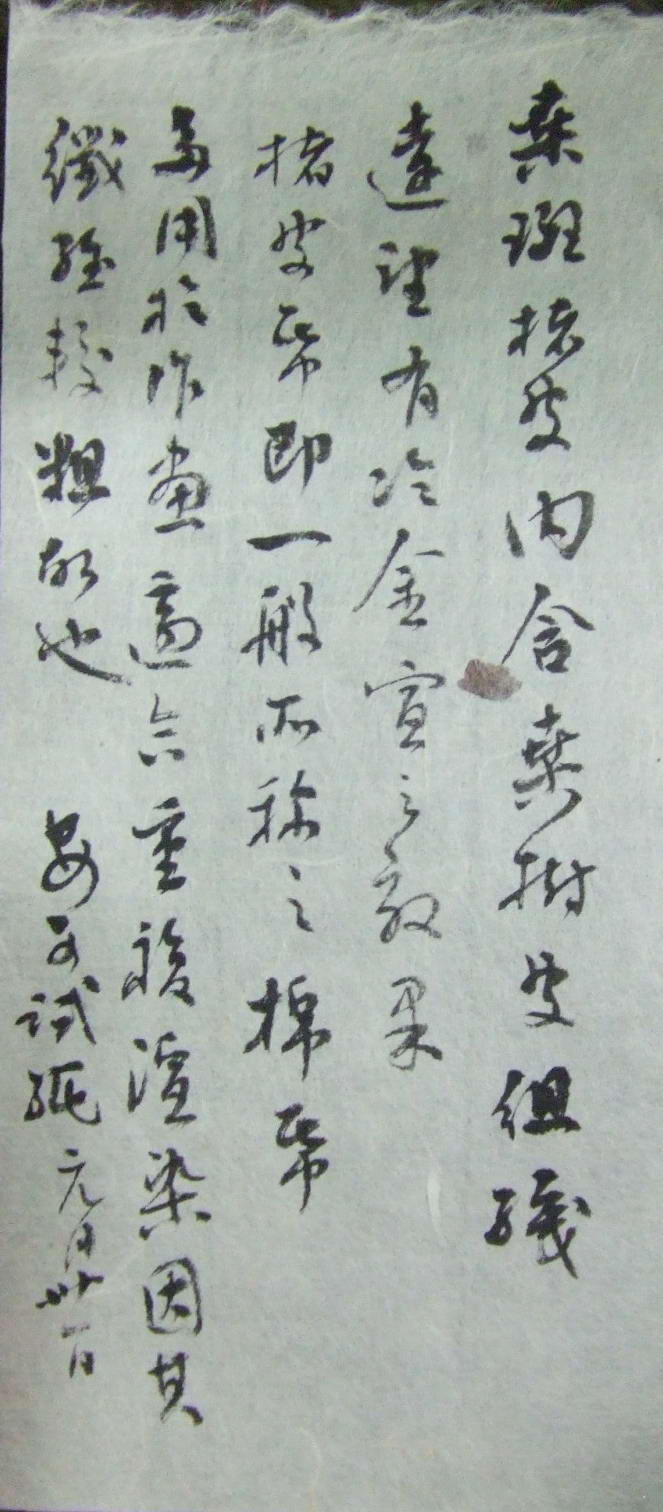 桑斑楮皮內含桑樹皮組織
遠望有冷金宣之效果
楮皮帋即一般所称之棉帋
多用於作畫適合重複渲染因其
纖維較粗故也
試紙元月卅一日